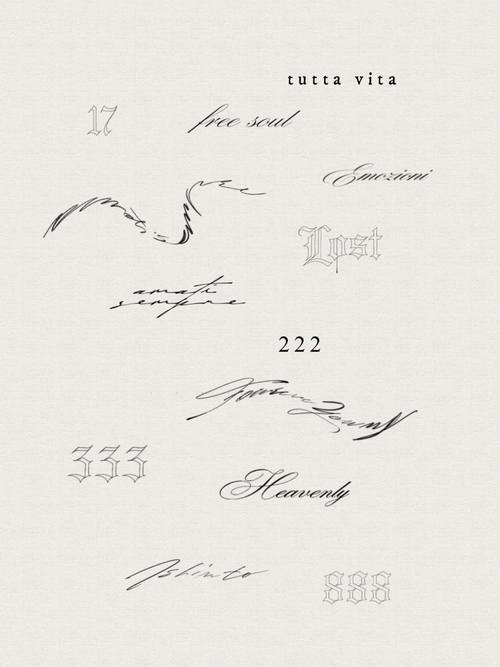 tutta vita
17
free soul
Emozioni
Lost
amati
sempre
222
Forever Young
333
Heavenly
Istinto
888